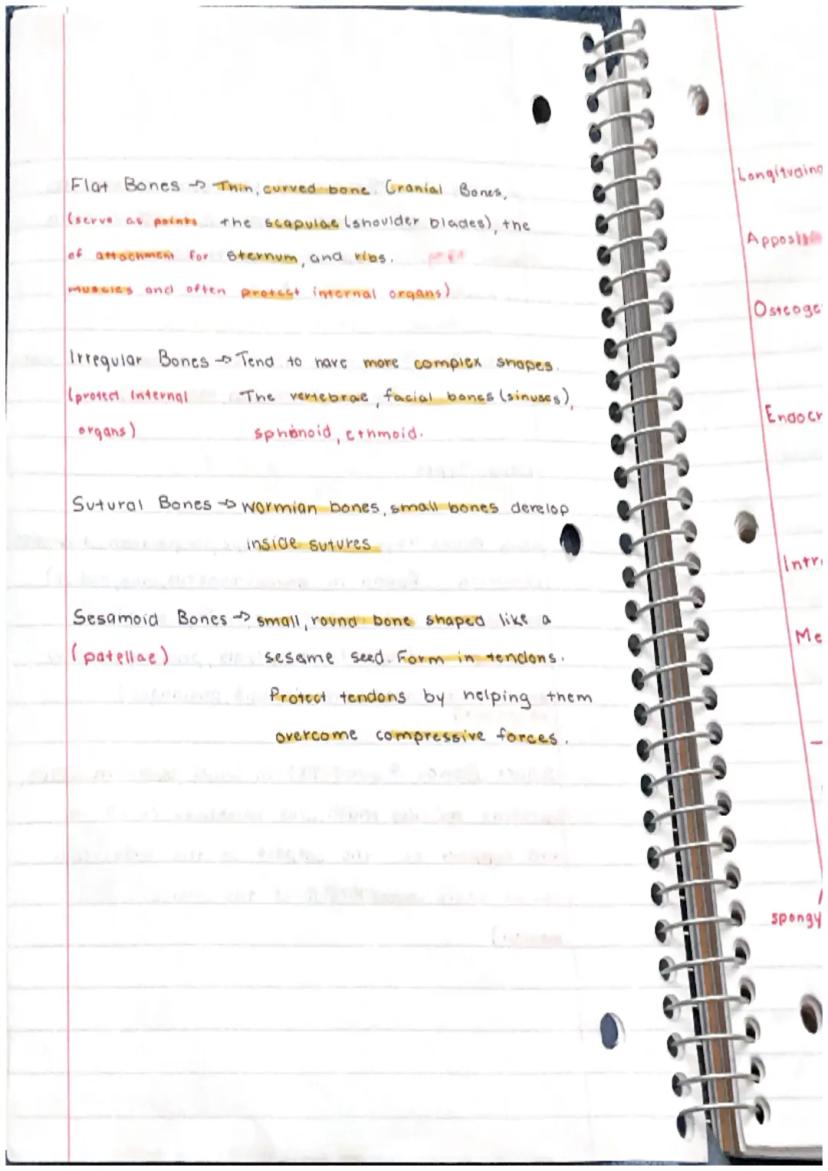 Flat Bones → Thin, curved bone Cranial Bones,
(serve as points the scapulae (shoulder blades), the
of attachment for sternum, and ribs.
muscles and often protect internal organs)
Irregular Bones → Tend to have more complex shapes.
(protect internal The vertebrae, facial bones (sinuses),
organs) sphenoid, ethmoid.
Sutural Bones → wormian bones, small bones develop
inside sutures
Sesamoid Bones → small, round bone shaped like a
(patellae) sesame seed. Form in tendons.
Protect tendons by helping them
overcome compressive forces.
Longitudin
Apposi
Osteoge
Endocr
Intr
Me
spongy